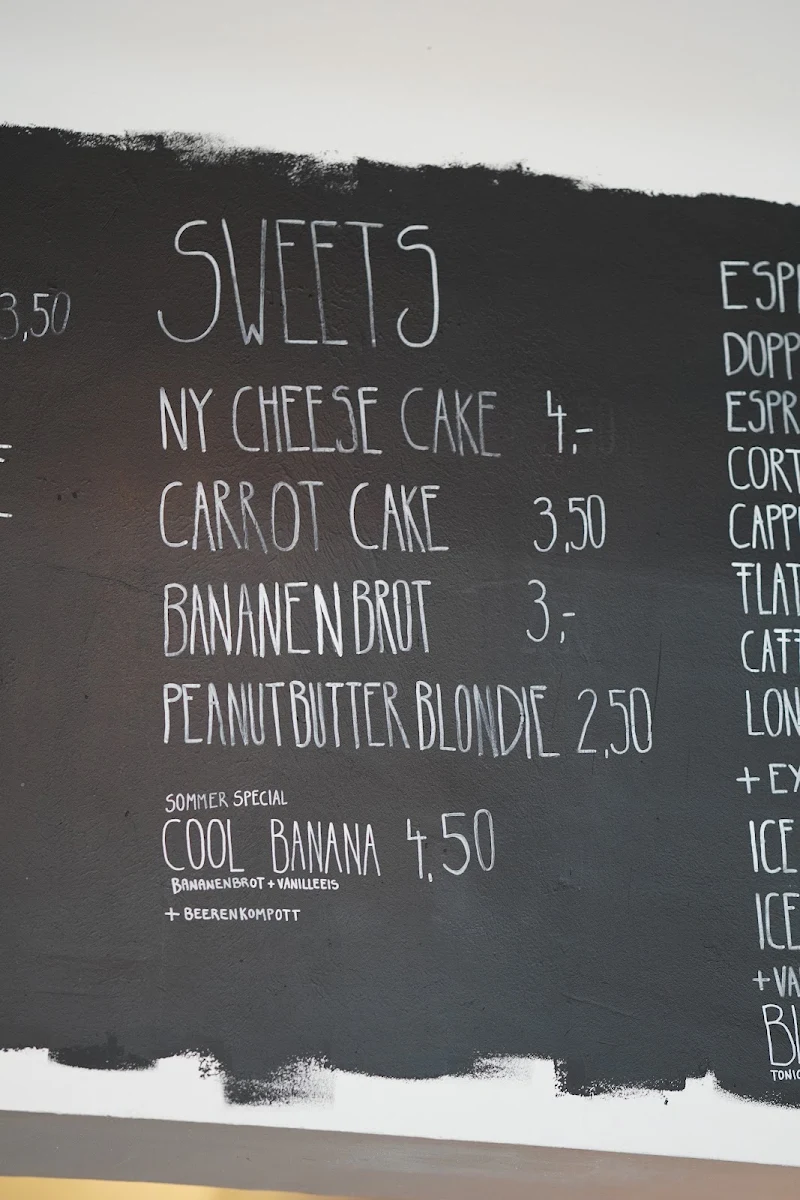 3,50
SWEETS
NY CHEESE CAKE 4,-
CARROT CAKE 3,50
BANANENBROT 3,-
PEANUTBUTTER BLONDIE 2,50
SOMMER SPECIAL
COOL BANANA 4,50
BANANENBROT + VANILLEEIS
+ BEERENKOMPOTT
ESP
DOPP
ESPR
CORT
CAPP
FLAT
CAFF
LON
+ EX
ICE
ICE
+ VA
TONIC